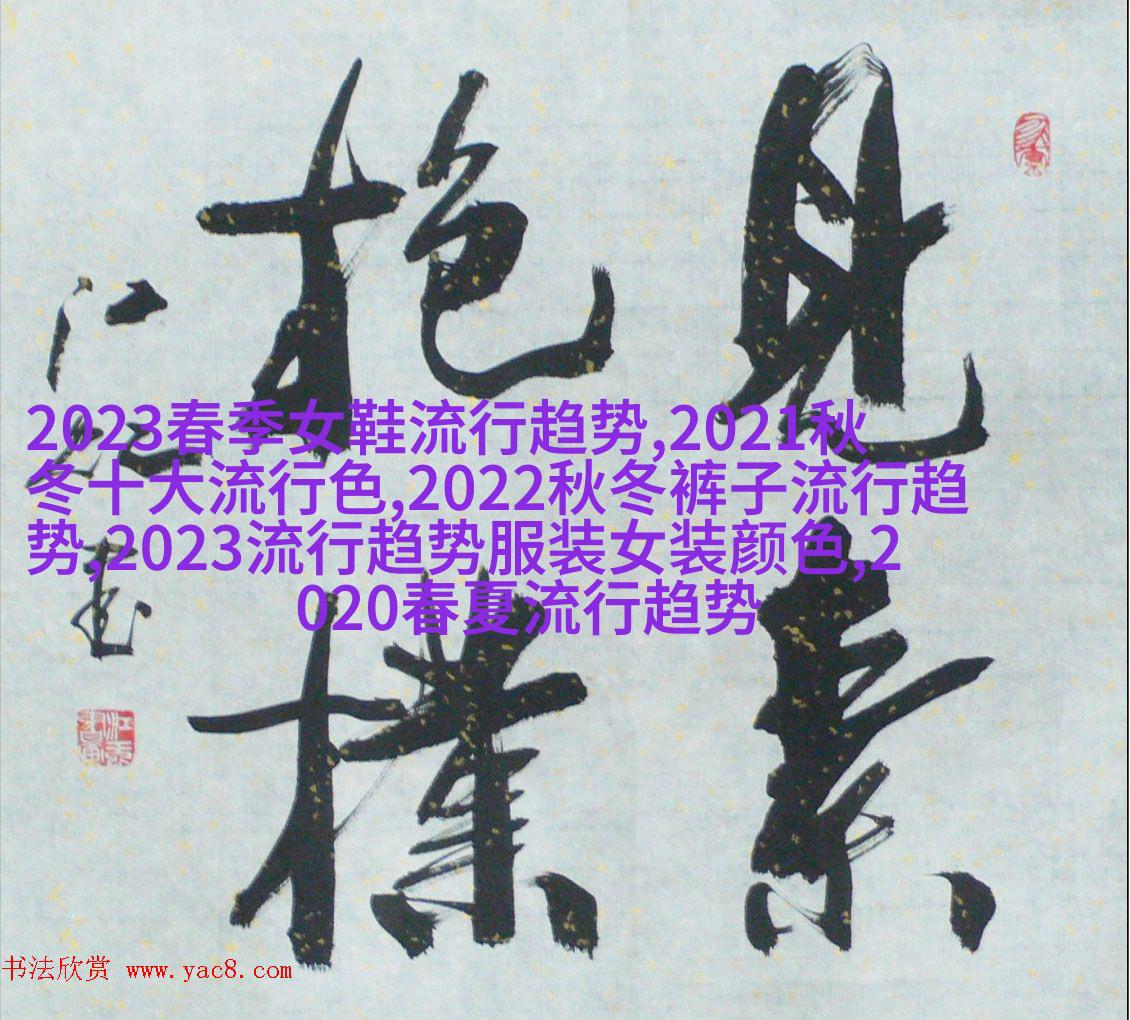 見素
抱樸
2023春季女鞋流行趋势,2021秋
冬十大流行色,2022秋冬裤子流行趋
势,2023流行趋势服装女装颜色,2
020春夏流行趋势
书法欣赏 www.yac8.com